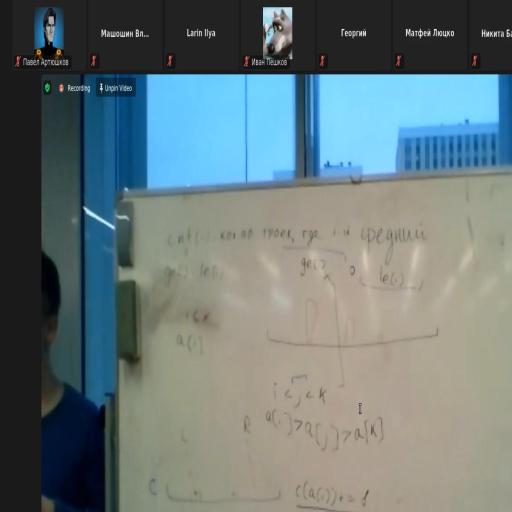 Павел Артюшков
Машошин Вл...
Larin Ilya
Иван Пешков
Георгий
Матфей Люцко
Никита Ба
Recording
Unpin Video
cnt(i) кол-во троек, где i-й средний
gr(i) le(i)
gr(i) le(i)
a(i)
i < j < k
a(i) > a(j) > a(k)
L R
c(a(i)) += 1